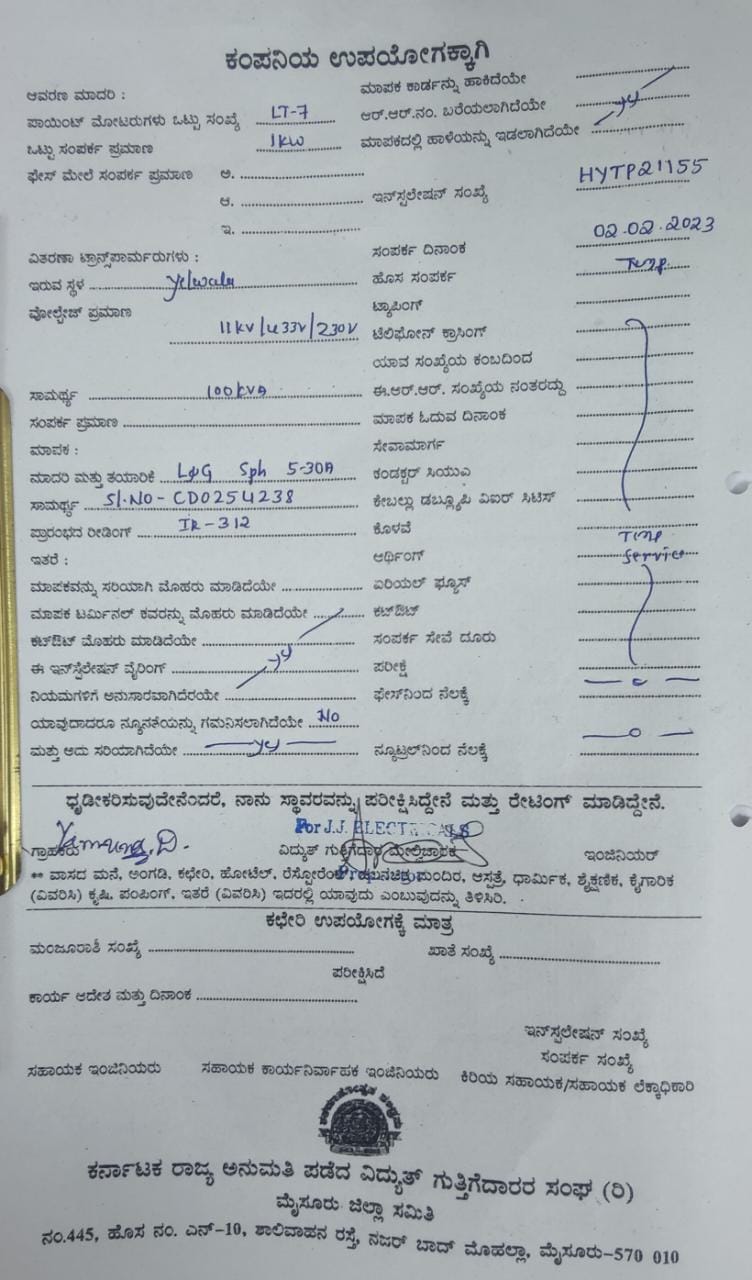 ಕಂಪನಿಯ ಉಪಯೋಗಕ್ಕಾಗಿ
ಆವರಣ ಮಾದರಿ :
ಮಾಪಕ ಕಾರ್ಡನ್ನು ಹಾಕಿದೆಯೇ
ಪಾಯಿಂಟ್ ಮೋಟರುಗಳು ಒಟ್ಟು ಸಂಖ್ಯೆ LT-7
ಆರ್.ಆರ್.ನಂ. ಬರೆಯಲಾಗಿದೆಯೇ
ಒಟ್ಟು ಸಂಪರ್ಕ ಪ್ರಮಾಣ 1KW
ಮಾಪಕದಲ್ಲಿ ಹಾಳೆಯನ್ನು ಇಡಲಾಗಿದೆಯೇ
ಫೇಸ್ ಮೇಲೆ ಸಂಪರ್ಕ ಪ್ರಮಾಣ ಅ.
ಆ.
ಇನ್‌ಸ್ಟಲೇಷನ್ ಸಂಖ್ಯೆ HYTP21155
ಇ.
ವಿತರಣಾ ಟ್ರಾನ್ಸ್‌ಪಾರ್ಮರುಗಳು :
ಸಂಪರ್ಕ ದಿನಾಂಕ 02.02.2023
ಇರುವ ಸ್ಥಳ Yelwala
ಹೊಸ ಸಂಪರ್ಕ Temp.
ವೋಲ್ಟೇಜ್ ಪ್ರಮಾಣ
ಟ್ಯಾಪಿಂಗ್
11KV/433V/230V
ಟೆಲಿಫೋನ್ ಕ್ರಾಸಿಂಗ್
ಯಾವ ಸಂಖ್ಯೆಯ ಕಂಬದಿಂದ
ಸಾಮರ್ಥ್ಯ 100KVA
ಈ.ಆರ್.ಆರ್. ಸಂಖ್ಯೆಯ ನಂತರದ್ದು
ಸಂಪರ್ಕ ಪ್ರಮಾಣ
ಮಾಪಕ ಓದುವ ದಿನಾಂಕ
ಮಾಪಕ :
ಸೇವಾಮಾರ್ಗ
ಮಾದರಿ ಮತ್ತು ತಯಾರಿಕೆ L&G Sph 5-30A
ಕಂಡಕ್ಟರ್ ಸಿಯುಎ
ಸಾಮರ್ಥ್ಯ Sl.NO-CD0254238
ಕೇಬಲ್ಲು ಡಬ್ಲ್ಯೂಪಿ ವಿಐರ್ ಸಿಟಿಸ್
ಪ್ರಾರಂಭದ ರೀಡಿಂಗ್ IR-312
ಕೊಳವೆ
ಇತರೆ :
ಆರ್ಥಿಂಗ್ Temp Service
ಮಾಪಕವನ್ನು ಸರಿಯಾಗಿ ಮೊಹರು ಮಾಡಿದೆಯೇ
ಏರಿಯಲ್ ಫ್ಯೂಸ್
ಮಾಪಕ ಟರ್ಮಿನಲ್ ಕವರನ್ನು ಮೊಹರು ಮಾಡಿದೆಯೇ
ಕಟ್‌ಔಟ್
ಕಟ್‌ಔಟ್ ಮೊಹರು ಮಾಡಿದೆಯೇ
ಸಂಪರ್ಕ ಸೇವೆ ದೂರು
ಈ ಇನ್‌ಸ್ಟೆಲೇಷನ್ ವೈರಿಂಗ್
ಪರೀಕ್ಷೆ
ನಿಯಮಗಳಿಗೆ ಅನುಸಾರವಾಗಿದೆರಯೇ
ಫೇಸ್‌ನಿಂದ ನೆಲಕ್ಕೆ — 0 —
ಯಾವುದಾದರೂ ನ್ಯೂನತೆಯನ್ನು ಗಮನಿಸಲಾಗಿದೆಯೇ No
ಮತ್ತು ಅದು ಸರಿಯಾಗಿದೆಯೇ
ನ್ಯೂಟ್ರಲ್‌ನಿಂದ ನೆಲಕ್ಕೆ — 0 —
ಧೃಡೀಕರಿಸುವುದೇನೆಂದರೆ, ನಾನು ಸ್ಥಾವರವನ್ನು ಪರೀಕ್ಷಿಸಿದ್ದೇನೆ ಮತ್ತು ರೇಟಿಂಗ್ ಮಾಡಿದ್ದೇನೆ.
Yamuna.D.
For J.J. ELECTRICALS
ಗ್ರಾಹಕರು ವಿದ್ಯುತ್ ಗುತ್ತಿಗೆದಾರ ಮೇಲ್ವಿಚಾರಕ ಇಂಜಿನಿಯರ್
** ವಾಸದ ಮನೆ, ಅಂಗಡಿ, ಕಛೇರಿ, ಹೋಟೆಲ್, ರೆಸ್ಟೋರೆಂಟ್ ಮಂದಿರ, ಆಸ್ಪತ್ರೆ, ಧಾರ್ಮಿಕ, ಶೈಕ್ಷಣಿಕ, ಕೈಗಾರಿಕ
(ವಿವರಿಸಿ) ಕೃಷಿ, ಪಂಪಿಂಗ್, ಇತರೆ (ವಿವರಿಸಿ) ಇದರಲ್ಲಿ ಯಾವುದು ಎಂಬುವುದನ್ನು ತಿಳಿಸಿರಿ.
ಕಛೇರಿ ಉಪಯೋಗಕ್ಕೆ ಮಾತ್ರ
ಮಂಜೂರಾತಿ ಸಂಖ್ಯೆ ಖಾತೆ ಸಂಖ್ಯೆ
ಪರೀಕ್ಷಿಸಿದೆ
ಕಾರ್ಯ ಆದೇತ ಮತ್ತು ದಿನಾಂಕ
ಇನ್‌ಸ್ಪಲೇಷನ್ ಸಂಖ್ಯೆ
ಸಂಪರ್ಕ ಸಂಖ್ಯೆ
ಸಹಾಯಕ ಇಂಜಿನಿಯರು ಸಹಾಯಕ ಕಾರ್ಯನಿರ್ವಾಹಕ ಇಂಜಿನಿಯರು ಕಿರಿಯ ಸಹಾಯಕ/ಸಹಾಯಕ ಲೆಕ್ಕಾಧಿಕಾರಿ
ಕರ್ನಾಟಕ ರಾಜ್ಯ ಅನುಮತಿ ಪಡೆದ ವಿದ್ಯುತ್ ಗುತ್ತಿಗೆದಾರರ ಸಂಘ (ರಿ)
ಮೈಸೂರು ಜಿಲ್ಲಾ ಸಮಿತಿ
ನಂ.445, ಹೊಸ ನಂ. ಎನ್-10, ಶಾಲಿವಾಹನ ರಸ್ತೆ, ನಜರ್ ಬಾದ್ ಮೊಹಲ್ಲಾ, ಮೈಸೂರು-570 010